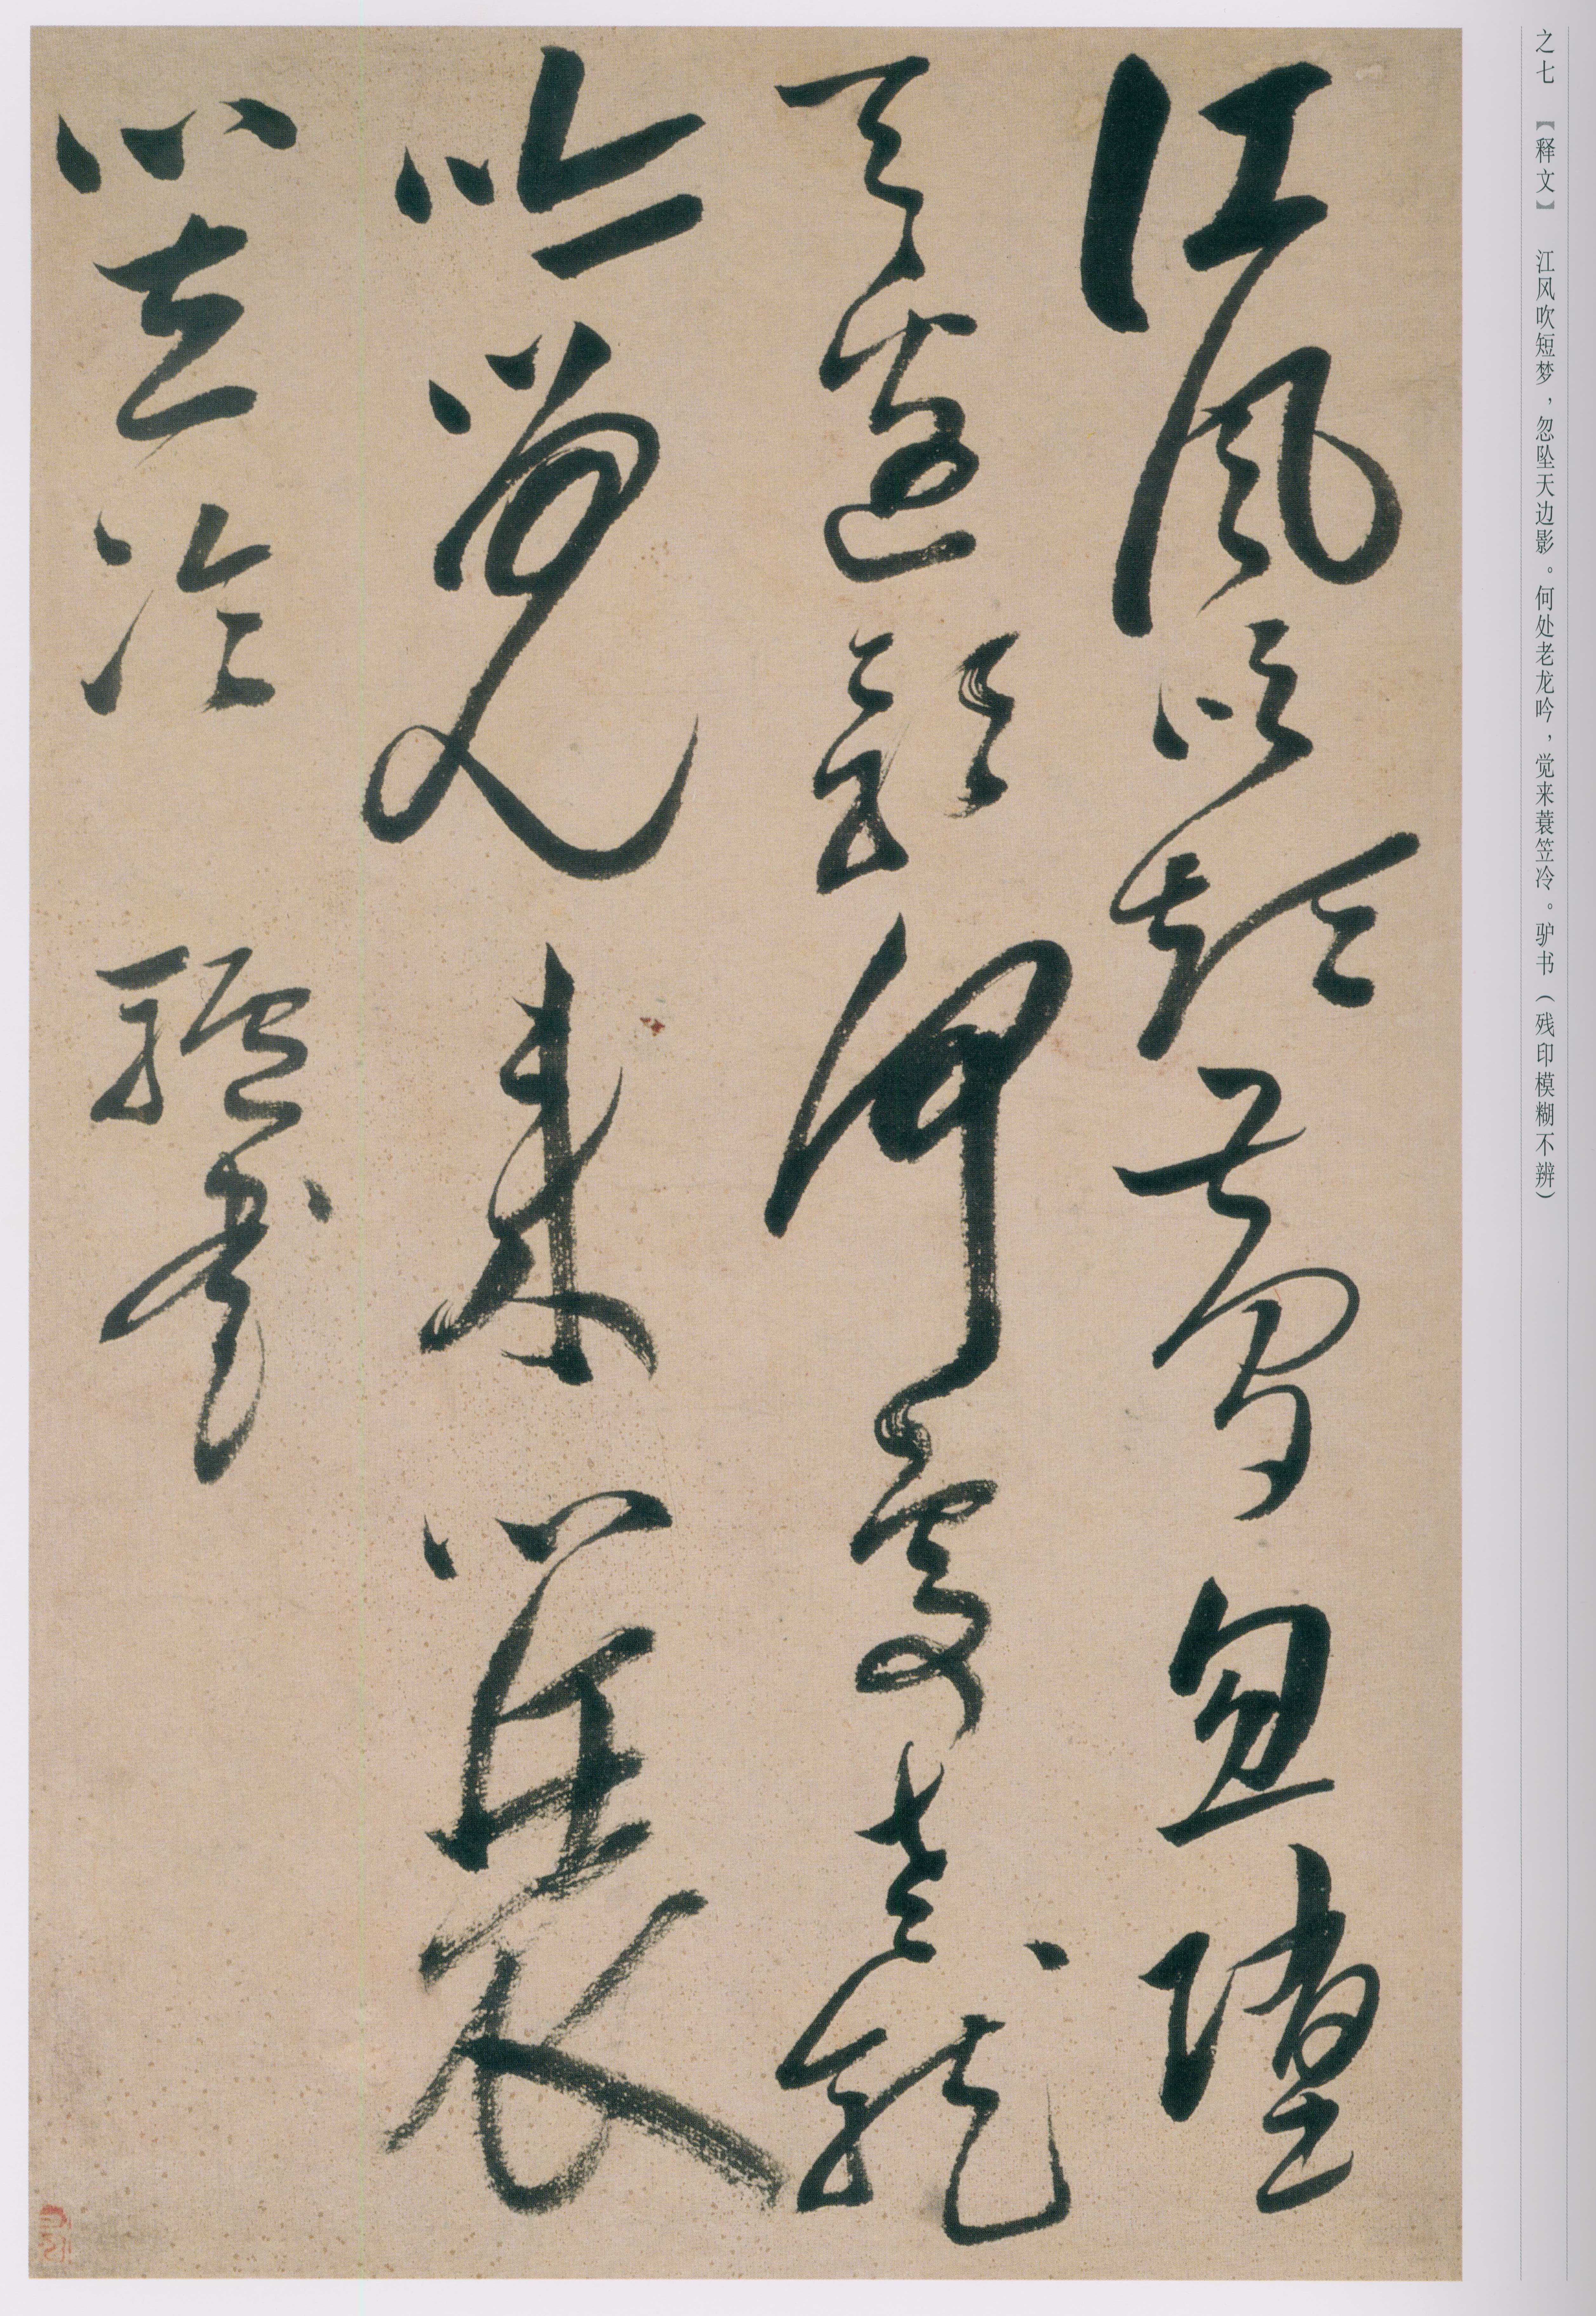 之七 【释文】 江风吹短梦，忽坠天边影。何处老龙吟，觉来蓑笠冷。驴书（残印模糊不辨）
江風吹短夢忽墮
天邊影何處老龍
吟覺来簑
笠冷 驢書